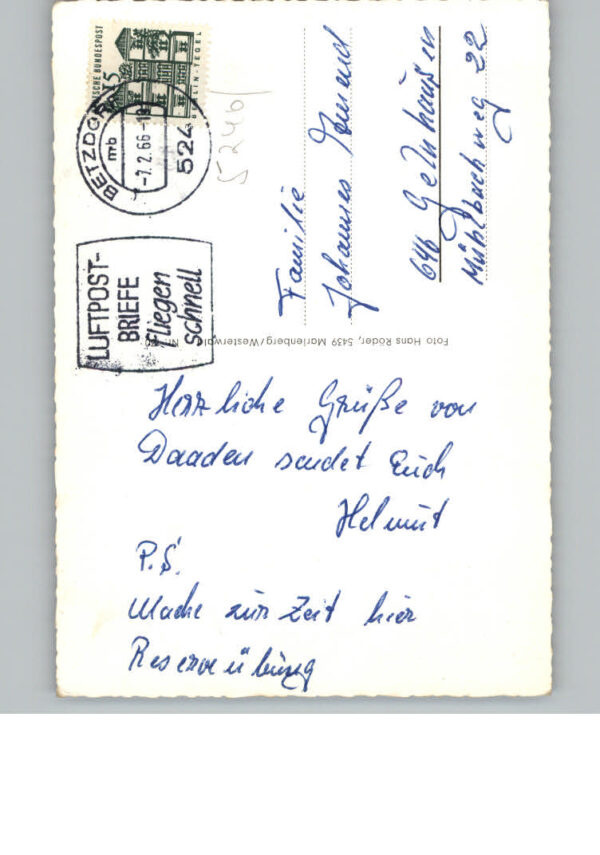 DEUTSCHE BUNDESPOST
15
BERLIN-TEGEL
BETZDORF
mb
-7.2.66-18
524
5246
LUFTPOST-
BRIEFE
fliegen
schnell
Familie
Johannes
646 Gelnhausen
Mühlbachweg 22
Foto Hans Röder, 5439 Marienberg/Westerwald
Herzliche Grüße von
Daaden sendet Euch
Helmut
P.S.
Mache zur Zeit hier
Reserveübung